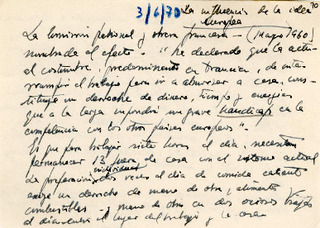 3/6/70 La influencia de la idea 70
Europea
La Comisión patronal y obrera francesa — (Mayo 1960)
nombrada al efecto — "ha declarado que la actu-
al costumbre, predominante en Francia, de inte-
rrumpir el trabajo para ir a almorzar a casa, cons-
tituye un derroche de dinero, tiempo y energías
que a la larga supondrá un grave handicap en la
competencia con los otros países europeos".
Es que para trabajar siete horas al día, necesitan
permanecer 13 fuera de casa con el sistema actual
La preparación individual dos veces al día de comida caliente
exige un derroche de mano de obra, alimentos
combustibles y mano de obra en dos ociosos viajes
al día entre el lugar del trabajo y la casa